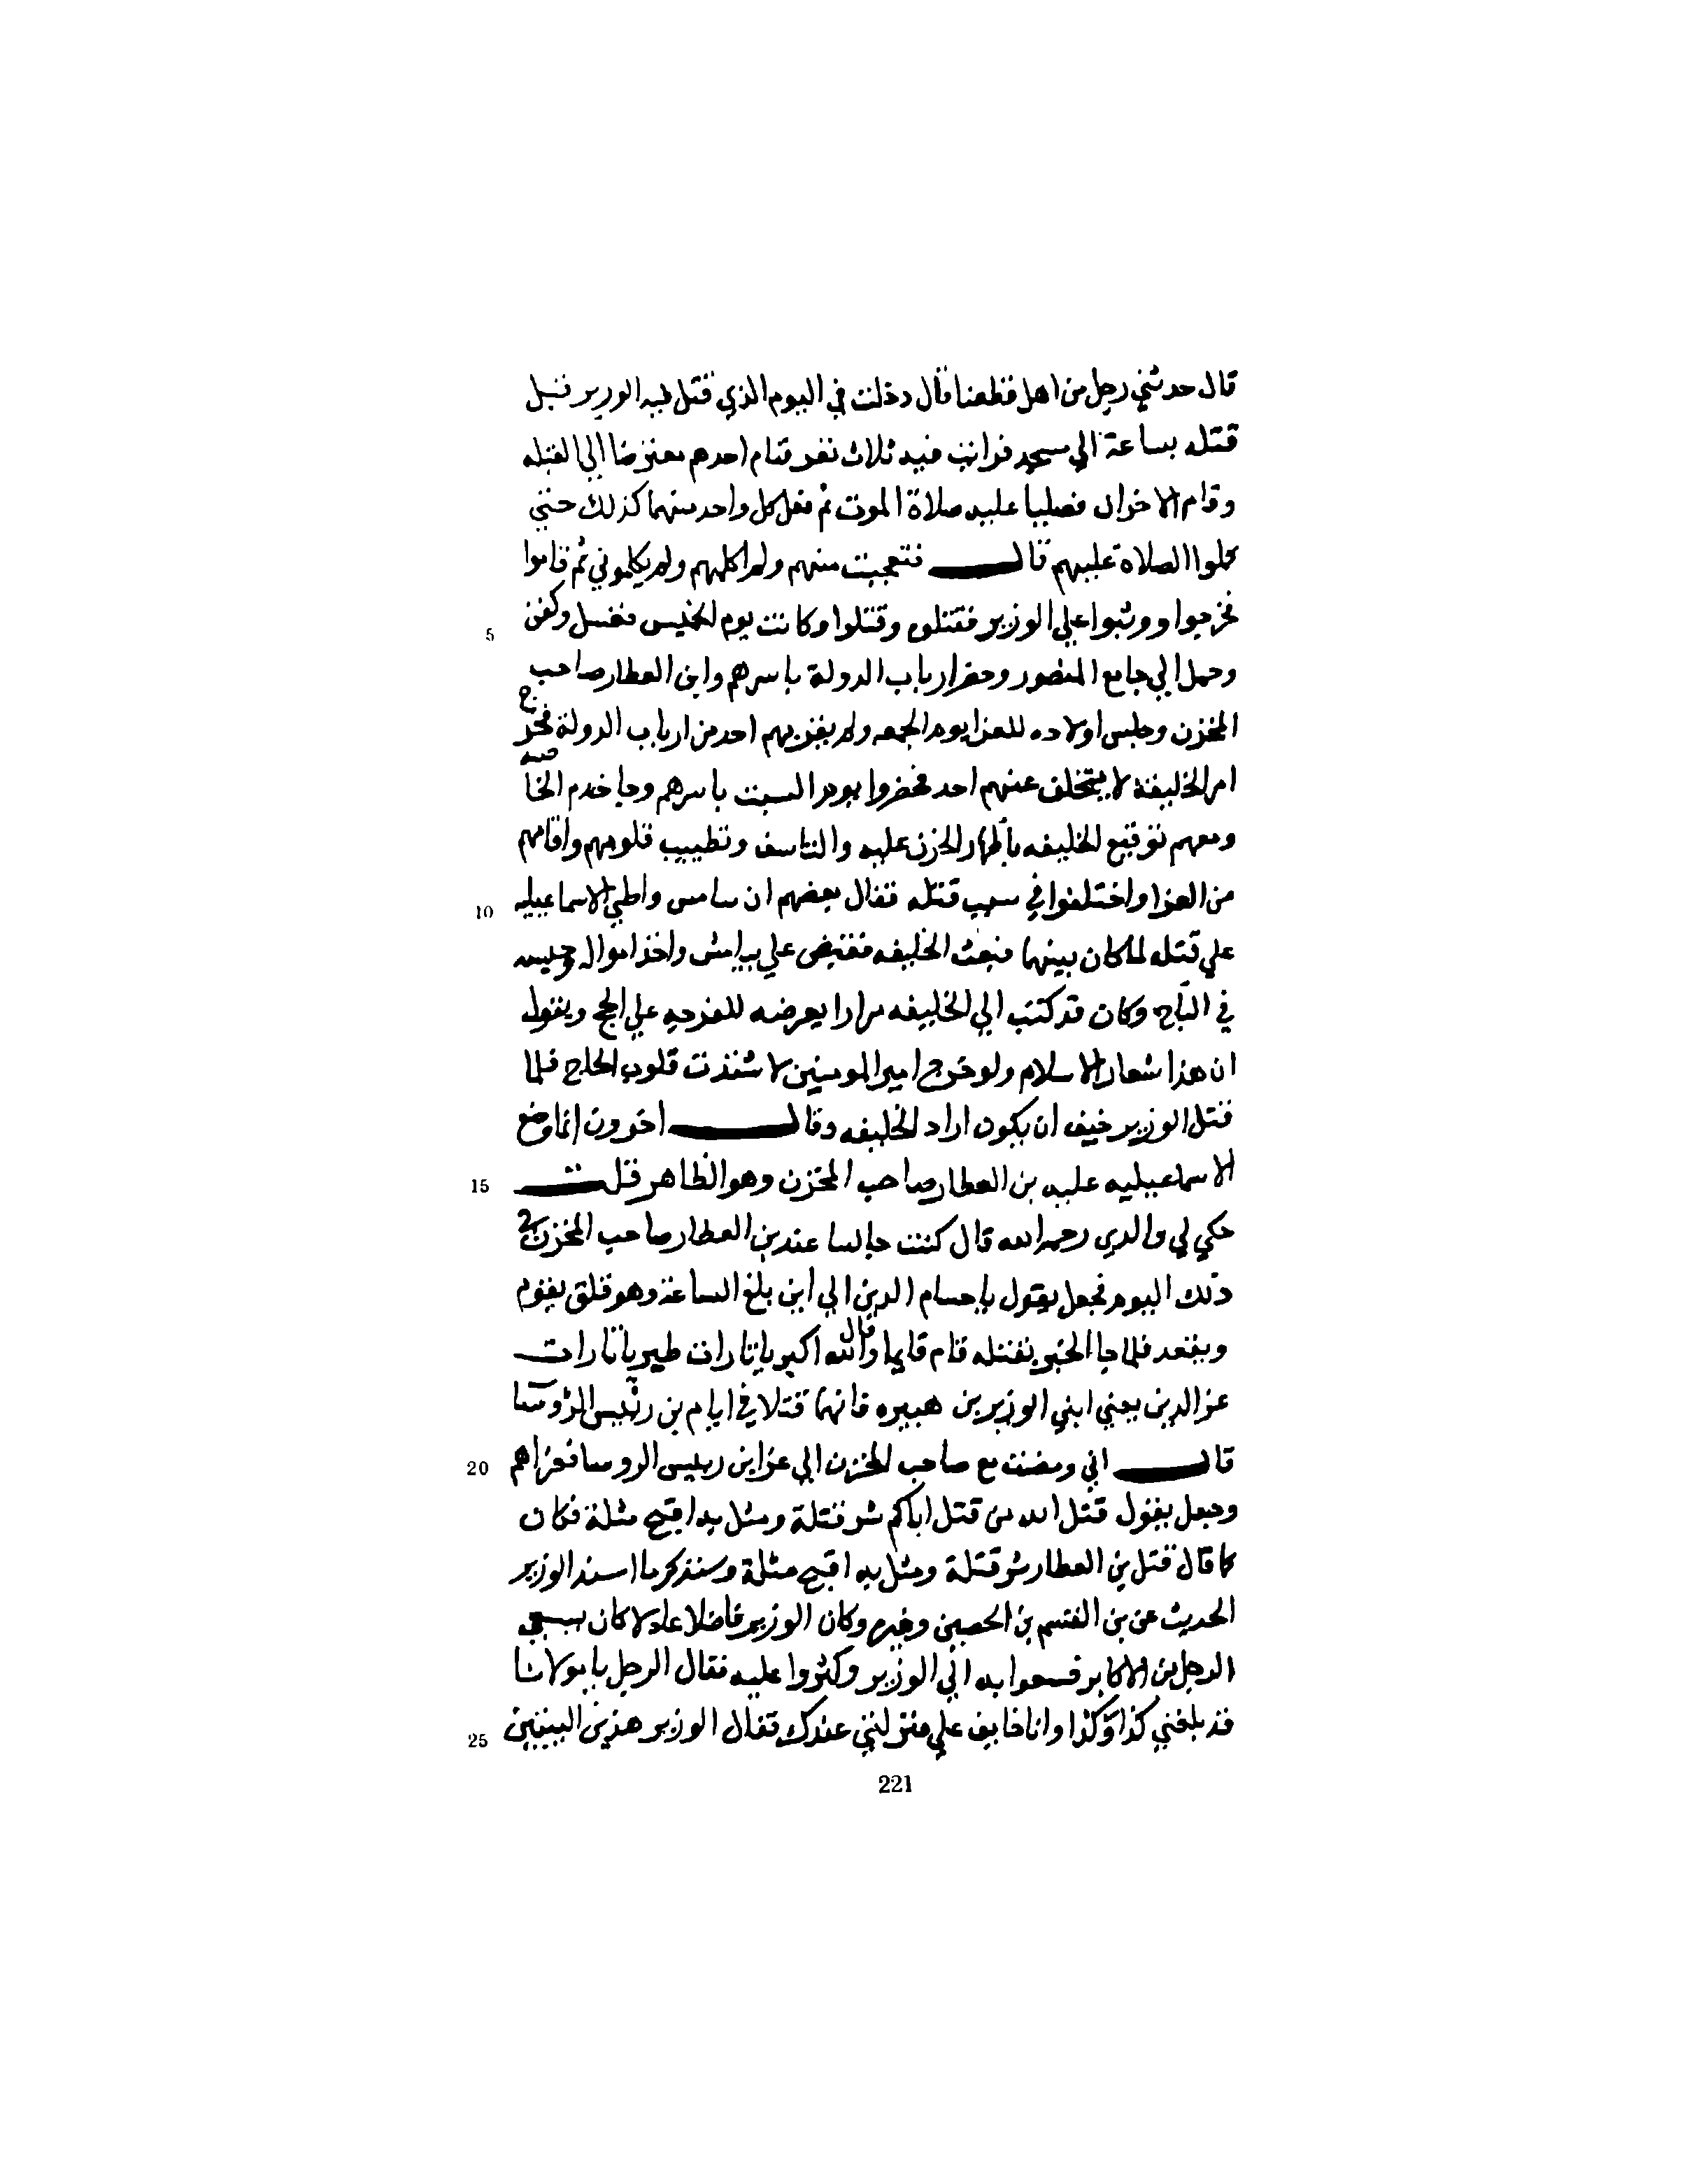 قال حدثني رجل من اهل قطفنا قال دخلت في اليوم الذي قتل فيه الوزير قبل
قتله بساعة الي مسجد فرايت فيه ثلاث نفر فقام احدهم معترضا الي القبله
وقام الاخران فصليا عليه صلاة الموت ثم فعل كل واحد منهما كذلك حتي
كملوا الصلاة عليهم قال فتعجبت منهم ولم اكلمهم ولم يكلموني ثم قاموا
فخرجوا ووثبوا علي الوزير فقتلوه وقتلوا وكانت يوم الخميس فغسل وكفن 5
وحمل الي جامع المنصور وحضر ارباب الدولة باسرهم وابن العطار صاحب
المخزن وجلس اولاده للعزا يوم الجمعه ولم يعزيهم احد من ارباب الدولة فخرج
امر الخليفة لا يتخلف عنهم احد فحضروا يوم السبت باسرهم وجا خدم الخاصه
ومعهم توقيع الخليفه باظهار الحزن عليه والتاسف وتطييب قلوبهم واقامهم
من العزا واختلفوا في سبب قتله فقال بعضهم ان سامس واطي الاسماعيليه 10
علي قتله لما كان بينهما فبعث الخليفه فقبض علي بيامش واخذ امواله وحبسه
في التاج وكان قد كتب الي الخليفه مرارا يعرضه للفرجه علي الحج ويقول
ان هذا شعار الاسلام ولو خرج امير المومنين لاشتدت قلوب الحاج فلما
قتل الوزير خيف ان يكون اراد الخليفه وقال اخرون انما وضع
الاسماعيليه عليه بن العطار صاحب المخزن وهو الظاهر قلت 15
حكي لي والدي رحمه الله قال كنت جالسا عند بن العطار صاحب المخزن في
ذلك اليوم فجعل يقول يا حسام الدين الي اين بلغ الساعة وهو قلق يقوم
ويقعد فلما جا الخبر بقتله قام قايما وقال الله اكبر يا ثارات طير يا ثارات
عز الدين يعني ابني الوزير بن هبيره فانهما قتلا في ايام بن رئيس الرؤسا
قال ابي ومضيت مع صاحب المخزن الي عزا بن رييس الروسا فعزاهم 20
وجعل يقول قتل الله من قتل اباكم شر قتلة ومثل به اقبح مثلة فكان
كما قال قتل بن العطار شر قتلة ومثل به اقبح مثلة وسنذكر ما اسند الوزير
الحديث عن بن القسم بن الحصين وغيره وكان الوزير فاضلا عادلا كان
الرجل من الاكابر فسعوا به الي الوزير وكثروا عليه فقال الرجل يا مولانا
قد بلغني كذا وكذا وانا خايف علي منزلتي عندك فقال الوزير هذين البيتين 25
221